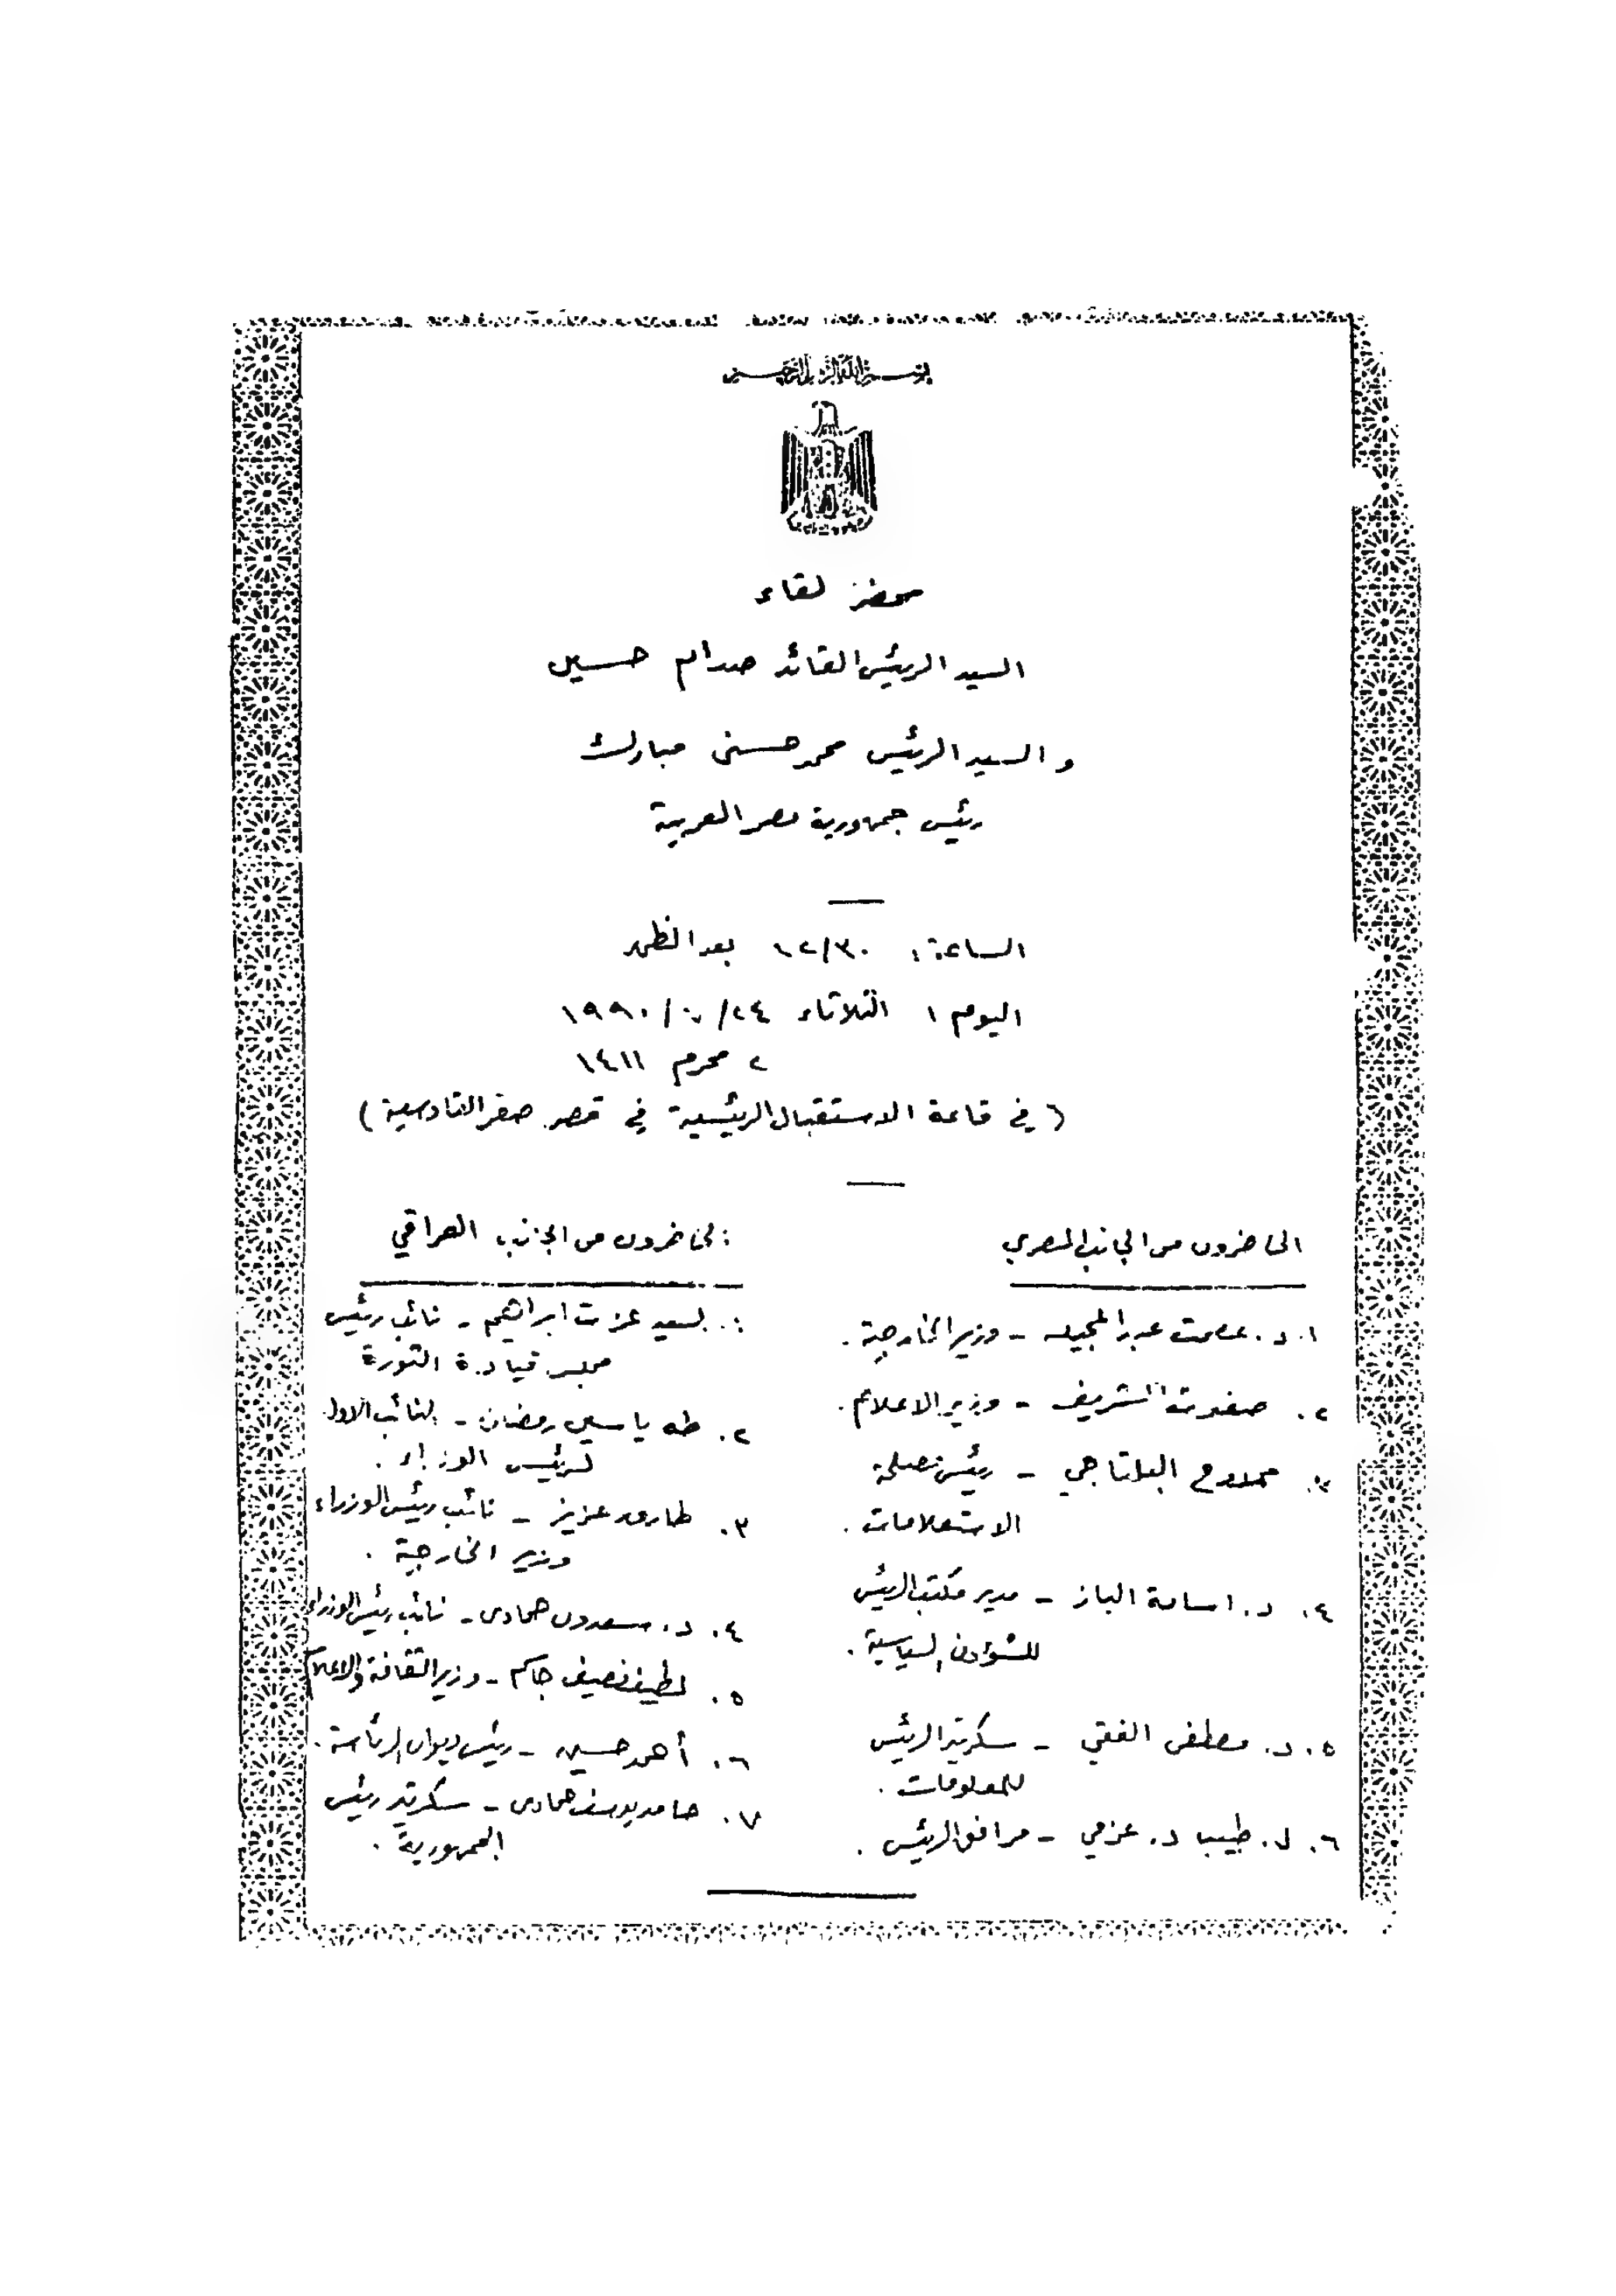 بسم الله الرحمن الرحيم
محضر لقاء
السيد الرئيس القائد صدام حسين
و السيد الرئيس محمد حسني مبارك
رئيس جمهورية مصر العربية
الساعة: ١٢/٣٠ بعد الظهر
اليوم: الثلاثاء ٢٤/٧/١٩٩٠
٢ محرم ١٤١١
(في قاعة الاستقبال الرئيسية في قصر صقر القادسية)
الحاضرون من الجانب المصري
١. د. عصمت عبد المجيد - وزير الخارجية.
٢. صفوت الشريف - وزير الاعلام.
٣. ممدوح البلتاجي - رئيس مصلحة
الاستعلامات.
٤. د. اسامة الباز - مدير مكتب الرئيس
للشؤون السياسية.
٥. د. مصطفى الفقي - سكرتير الرئيس
للمعلومات.
٦. د. طبيب د. عزمي - مرافق الرئيس.
الحاضرون من الجانب العراقي
١. السيد عزت ابراهيم - نائب رئيس
مجلس قيادة الثورة
٢. طه ياسين رمضان - النائب الاول
لرئيس الوزراء.
٣. طارق عزيز - نائب رئيس الوزراء
وزير الخارجية.
٤. د. سعدون حمادي - نائب رئيس الوزراء
٥. لطيف نصيف جاسم - وزير الثقافة والاعلام
٦. أحمد حسين - رئيس ديوان الرئاسة.
٧. حامد يوسف حمادي - سكرتير رئيس
الجمهورية.